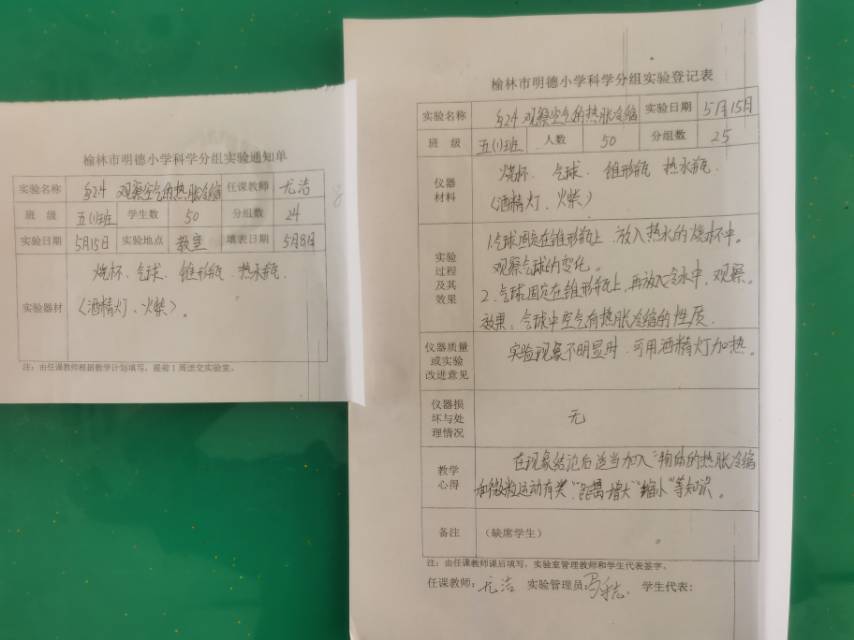 榆林市明德小学科学分组实验通知单
实验名称 §24 观察空气的热胀冷缩 任课教师 尤洁
班 级 五(1)班 学生数 50 分组数 24
实验日期 5月15日 实验地点 教室 填表日期 5月8日
实验器材
烧杯、气球、锥形瓶、热水瓶、
(酒精灯、火柴)。
注：由任课教师根据教学计划填写，提前1周送交实验室。
榆林市明德小学科学分组实验登记表
实验名称 §24 观察空气的热胀冷缩 实验日期 5月15日
班 级 五(1)班 人数 50 分组数 25
仪器
材料
烧杯、气球、锥形瓶 热水瓶、
(酒精灯、火柴)
实验
过程
及其
效果
1.气球固定在锥形瓶上，放入热水的烧杯中。
观察气球的变化。
2、气球固定在锥形瓶上,再放入冷水中，观察。
效果：气球中空气有热胀冷缩的性质.
仪器质量
或实验
改进意见
实验现象不明显时，可用酒精灯加热。
仪器损
坏与处
理情况
无
教学
心得
在现象结论后适当加入“物体的热胀冷缩
和微粒运动有关”，“距离增大”“缩小”等知识。
备注 (缺席学生)
注：由任课教师课后填写，实验室管理教师和学生代表签字。
任课教师: 尤洁 实验管理员: 学生代表: